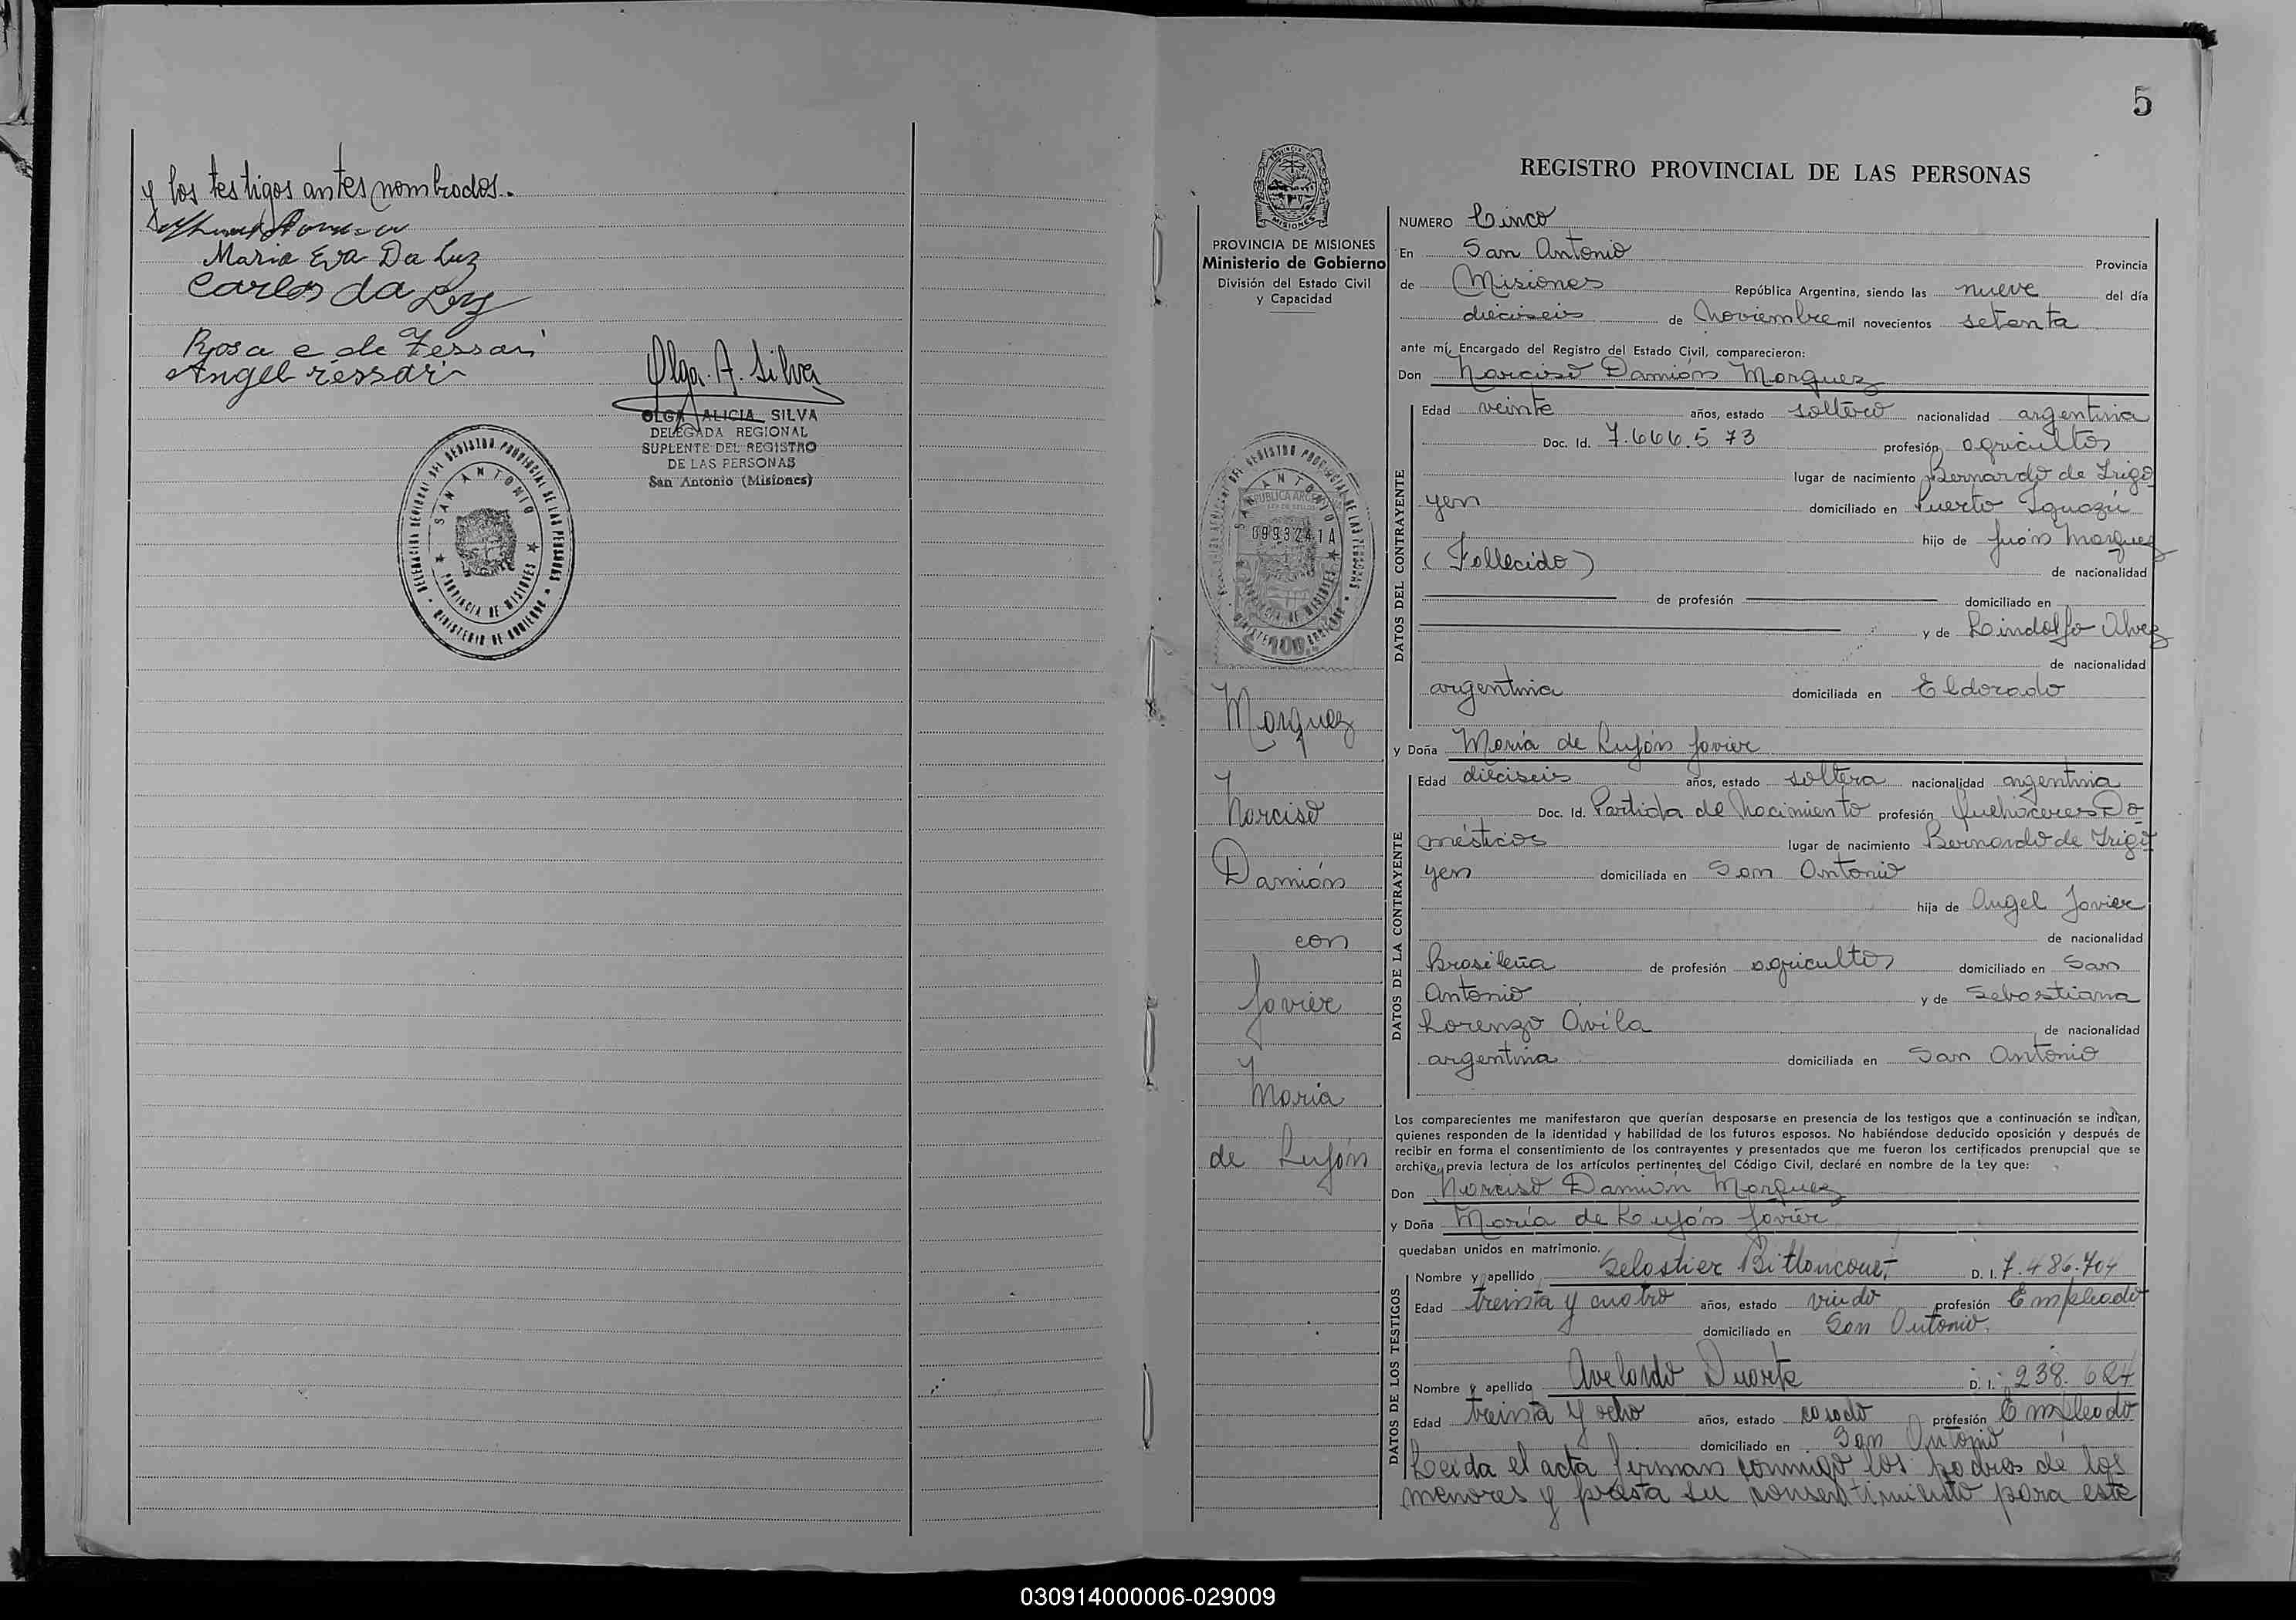 y los testigos antes nombrados.
Maria Eva Da Luz
Carlos da Luz
Rosa e de Fessari
Angel Fessari
Olga A. Silva
OLGA ALICIA SILVA
DELEGADA REGIONAL
SUPLENTE DEL REGISTRO
DE LAS PERSONAS
San Antonio (Misiones)
DELEGACION REGIONAL DEL REGISTRO PROVINCIAL DE LAS PERSONAS
SAN ANTONIO
PROVINCIA DE MISIONES
MINISTERIO DE GOBIERNO
5
REGISTRO PROVINCIAL DE LAS PERSONAS
PROVINCIA DE MISIONES
Ministerio de Gobierno
División del Estado Civil
y Capacidad
0993241A
SAN ANTONIO
PROVINCIA DE MISIONES
100
Marquez
y
Narciso
Damián
con
Javier
y
María
de Luján
NUMERO Cinco
En San Antonio Provincia
de Misiones República Argentina, siendo las nueve del día
dieciseis de Noviembre mil novecientos setenta
ante mí, Encargado del Registro del Estado Civil, comparecieron:
Don Narciso Damián Marquez
DATOS DEL CONTRAYENTE
Edad veinte años, estado soltero nacionalidad argentina
Doc. Id. 7.666.573 profesión agricultor
lugar de nacimiento Bernardo de Irigo
yen domiciliado en Puerto Iguazú
hijo de Juan Marquez
(Fallecido) de nacionalidad
de profesión domiciliado en
y de Lindolfo Alvez
de nacionalidad
argentina domiciliada en Eldorado
y Doña María de Luján Javier
DATOS DE LA CONTRAYENTE
Edad dieciseis años, estado soltera nacionalidad argentina
Doc. Id. Partida de Nacimiento profesión Quehaceres Do
mésticos lugar de nacimiento Bernardo de Irigo
yen domiciliada en San Antonio
hija de Angel Javier
de nacionalidad
Brasileña de profesión agricultor domiciliado en San
Antonio y de Sebastiana
Lorenzo Avila de nacionalidad
argentina domiciliada en San Antonio
Los comparecientes me manifestaron que querían desposarse en presencia de los testigos que a continuación se indican,
quienes responden de la identidad y habilidad de los futuros esposos. No habiéndose deducido oposición y después de
recibir en forma el consentimiento de los contrayentes y presentados que me fueron los certificados prenupcial que se
archiva, previa lectura de los artículos pertinentes del Código Civil, declaré en nombre de la Ley que:
Don Narciso Damián Marquez
y Doña María de Luján Javier
quedaban unidos en matrimonio.
DATOS DE LOS TESTIGOS
Nombre y apellido D. I. 7.486.704
Edad treinta y cuatro años, estado viudo profesión Empleado
domiciliado en San Antonio.
Nombre y apellido Avelardo Duarte D. I. 238.684
Edad treinta y ocho años, estado casado profesión Empleado
domiciliado en San Antonio
Leida el acta firman conmigo los padres de los
menores y presta su consentimiento para este
030914000006-029009